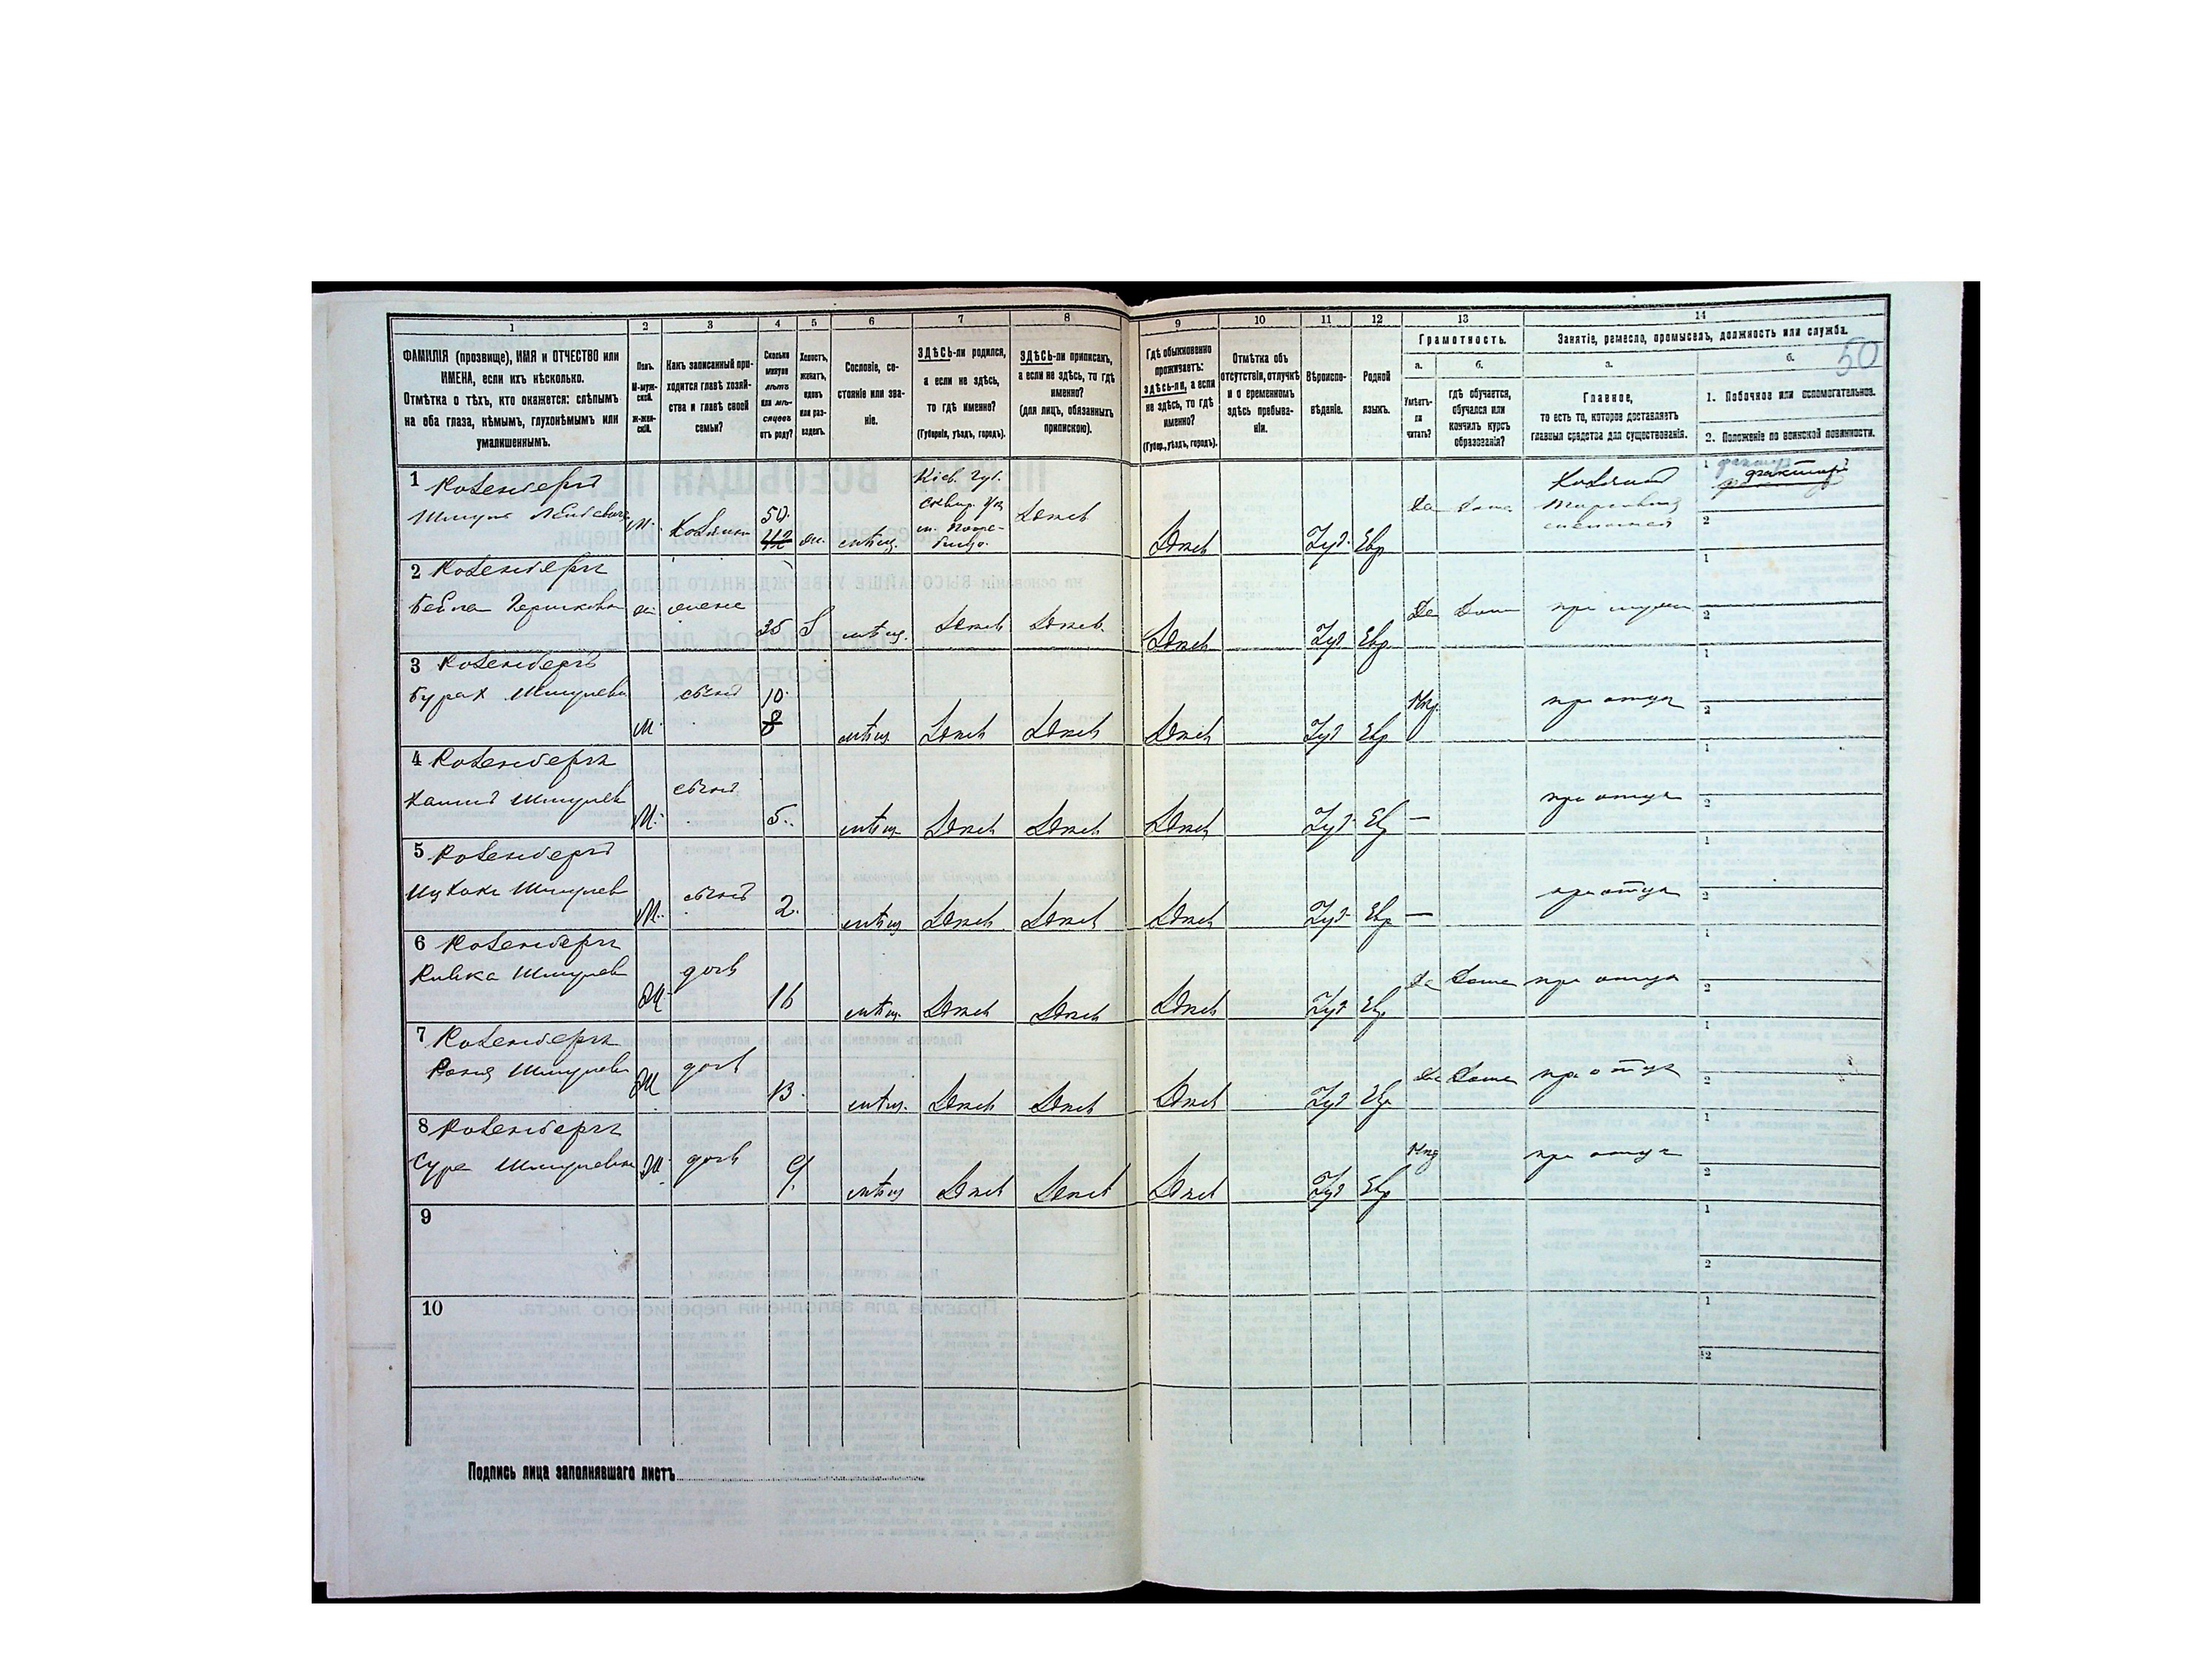 1 2 3 4 5 6 7 8 9 10 11 12 13 14
ФАМИЛІЯ (прозвище), ИМЯ и ОТЧЕСТВО или
ИМЕНА, если ихъ нѣсколько.
Отмѣтка о тѣхъ, кто окажется: слѣпымъ
на оба глаза, нѣмымъ, глухонѣмымъ или
умалишеннымъ.
Полъ.
М-муж-
ской.
ж-жен-
скій.
Какъ записанный при-
ходится главѣ хозяй-
ства и главѣ своей
семьи?
Сколько
минуло
лѣтъ
или мѣ-
сяцевъ
отъ роду?
Холостъ,
женатъ,
вдовъ
или раз-
веденъ.
Сословіе, со-
стояніе или зва-
ніе.
ЗДѢСЬ-ли родился,
а если не здѣсь,
то гдѣ именно?
(Губернія, уѣздъ, городъ).
ЗДѢСЬ-ли приписанъ,
а если не здѣсь, то гдѣ
именно?
(для лицъ, обязанныхъ
припискою).
Гдѣ обыкновенно
проживаетъ:
здѣсь-ли, а если
не здѣсь, то гдѣ
именно?
(Губер., уѣздъ, городъ).
Отмѣтка объ
отсутствіи, отлучкѣ
и о временномъ
здѣсь пребыва-
ніи.
Вѣроиспо-
вѣданіе.
Родной
языкъ.
Грамотность.
а.
Умѣетъ-
ли
читать?
б.
гдѣ обучается,
обучался или
кончилъ курсъ
образованія?
Занятіе, ремесло, промыселъ, должность или служба.
а.
Главное,
то есть то, которое доставляетъ
главныя средства для существованія.
б.
50
1. Побочное или вспомогательное.
2. Положеніе по воинской повинности.
1 Розенбергъ
Шмуль Лейбовичъ
М. Хозяинъ 50. 42 ж. мѣщ.
Кіев. Губ.
Сквир. Уѣз
м. Погре-
бище.
Здѣсь Здѣсь Іуд. Евр
Да Дома
Хозяинъ
факторъ
2 Розенбергъ
Бейла Гершкова ж жена 35 З мѣщ. Здѣсь Здѣсь. Здѣсь Іуд Евр. Да Дома при мужѣ
3 Розенбергъ
Бурах Шмулев М сынъ 10. 8 мѣщ Здѣсь Здѣсь Здѣсь Іуд Евр Нѣт. при отцѣ
4 Розенбергъ
Шмулев М. сынъ 5. мѣщ Здѣсь Здѣсь Здѣсь Іуд Ев — при отцѣ
5 Розенбергъ
Ицхокъ Шмулев М. сынъ 2. мѣщ Здѣсь Здѣсь Здѣсь Іуд Евр — при отцѣ
6 Розенбергъ
Ривка Шмулев Ж дочь 16 мѣщ. Здѣсь Здѣсь Здѣсь Іуд Ев Да Дома при отцѣ
7 Розенбергъ
Шмулев Ж дочь 13. мѣщ. Здѣсь Здѣсь Здѣсь Іуд Евр Да Дома при отцѣ
8 Розенбергъ
Сура Шмулевна Ж дочь 9. мѣщ Здѣсь Здѣсь Здѣсь Іуд Евр Нѣт при отцѣ
9
10
Подпись лица заполнявшаго листъ